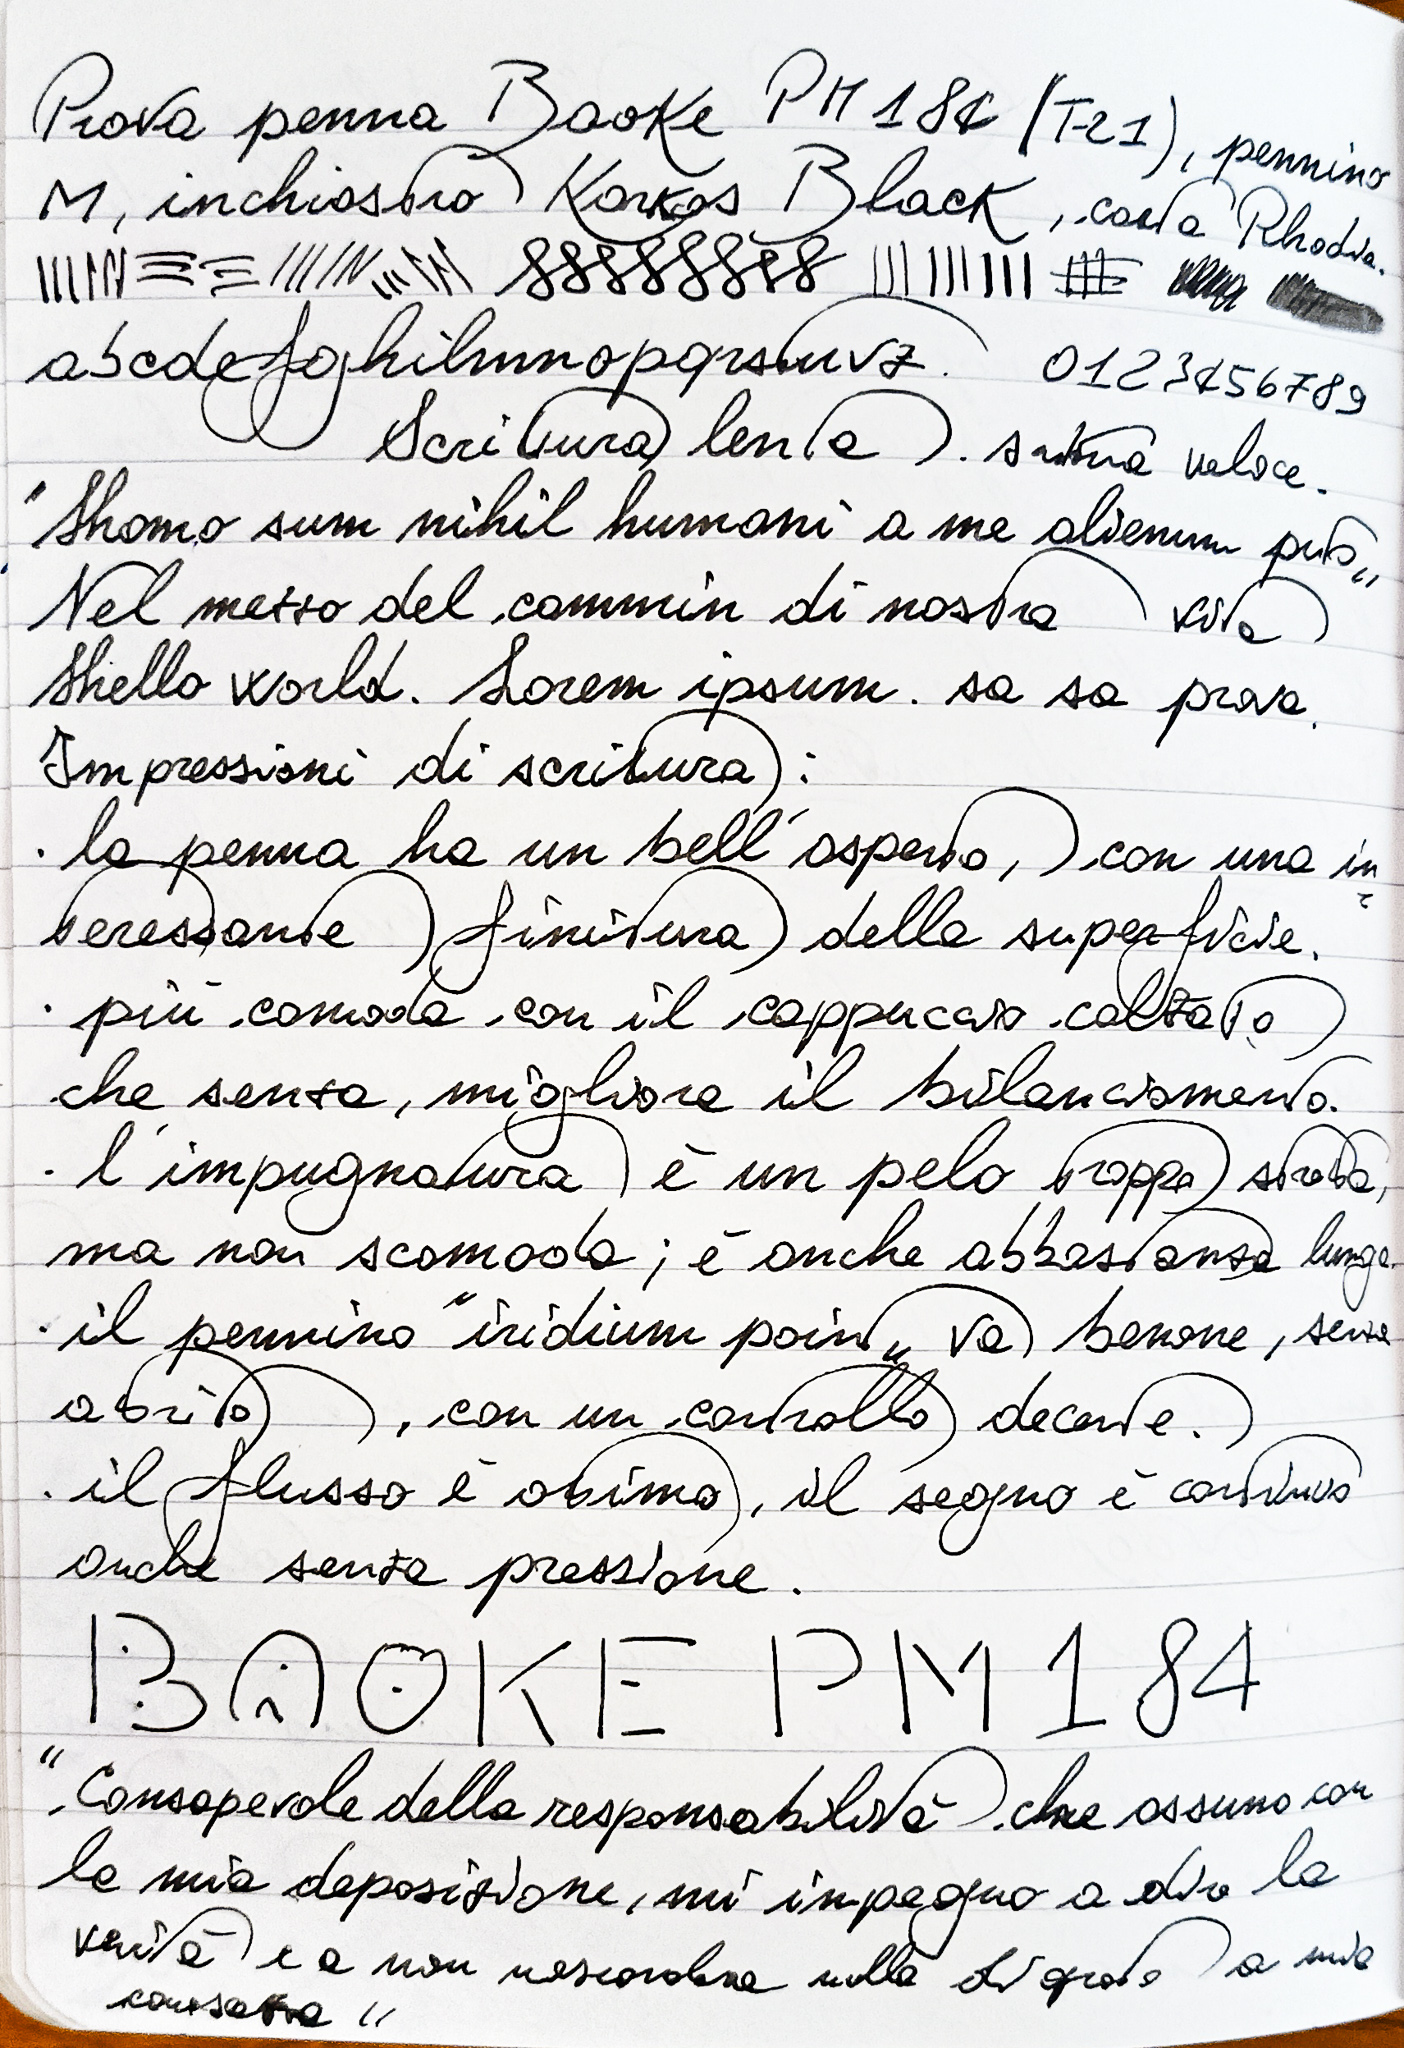 Prova penna Baoke PM 184 (T21), pennino
M, inchiostro Karkos Black, carta Rhodia.
abcdefghilmnopqrstuvz. 0123456789
Scrittura lenta. scrittura veloce.
"Homo sum nihil humani a me alienum puto"
Nel mezzo del cammin di nostra vita
Hello world. Lorem ipsum. sa sa prova.
Impressioni di scrittura:
. la penna ha un bell'aspetto, con una in
teressante finitura della superficie.
. più comoda con il cappuccio calzato
che senza, migliora il bilanciamento.
. l'impugnatura è un pelo troppo stretta,
ma non scomoda; è anche abbastanza lunga.
. il pennino "iridium point" va benone, senza
attrito, con un controllo decente.
. il flusso è ottimo, il segno è continuo
anche senza pressione.
BAOKE PM 184
"Consapevole della responsabilità che assumo con
la mia deposizione, mi impegno a dire la
verità e a non nascondere nulla di quanto a mia
conoscenza"